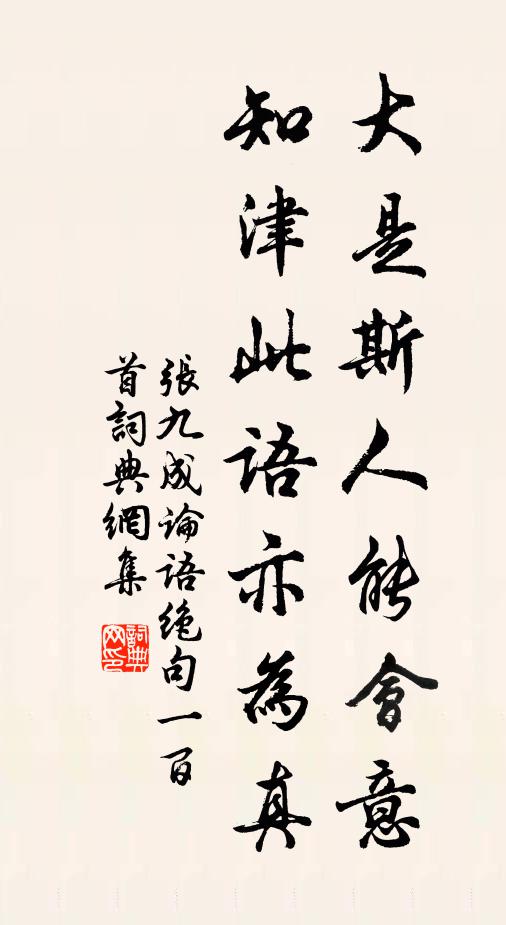 大是斯人能會意
知津此語亦為真
張九成論語绝句一百
首詞典網集
詞典网印